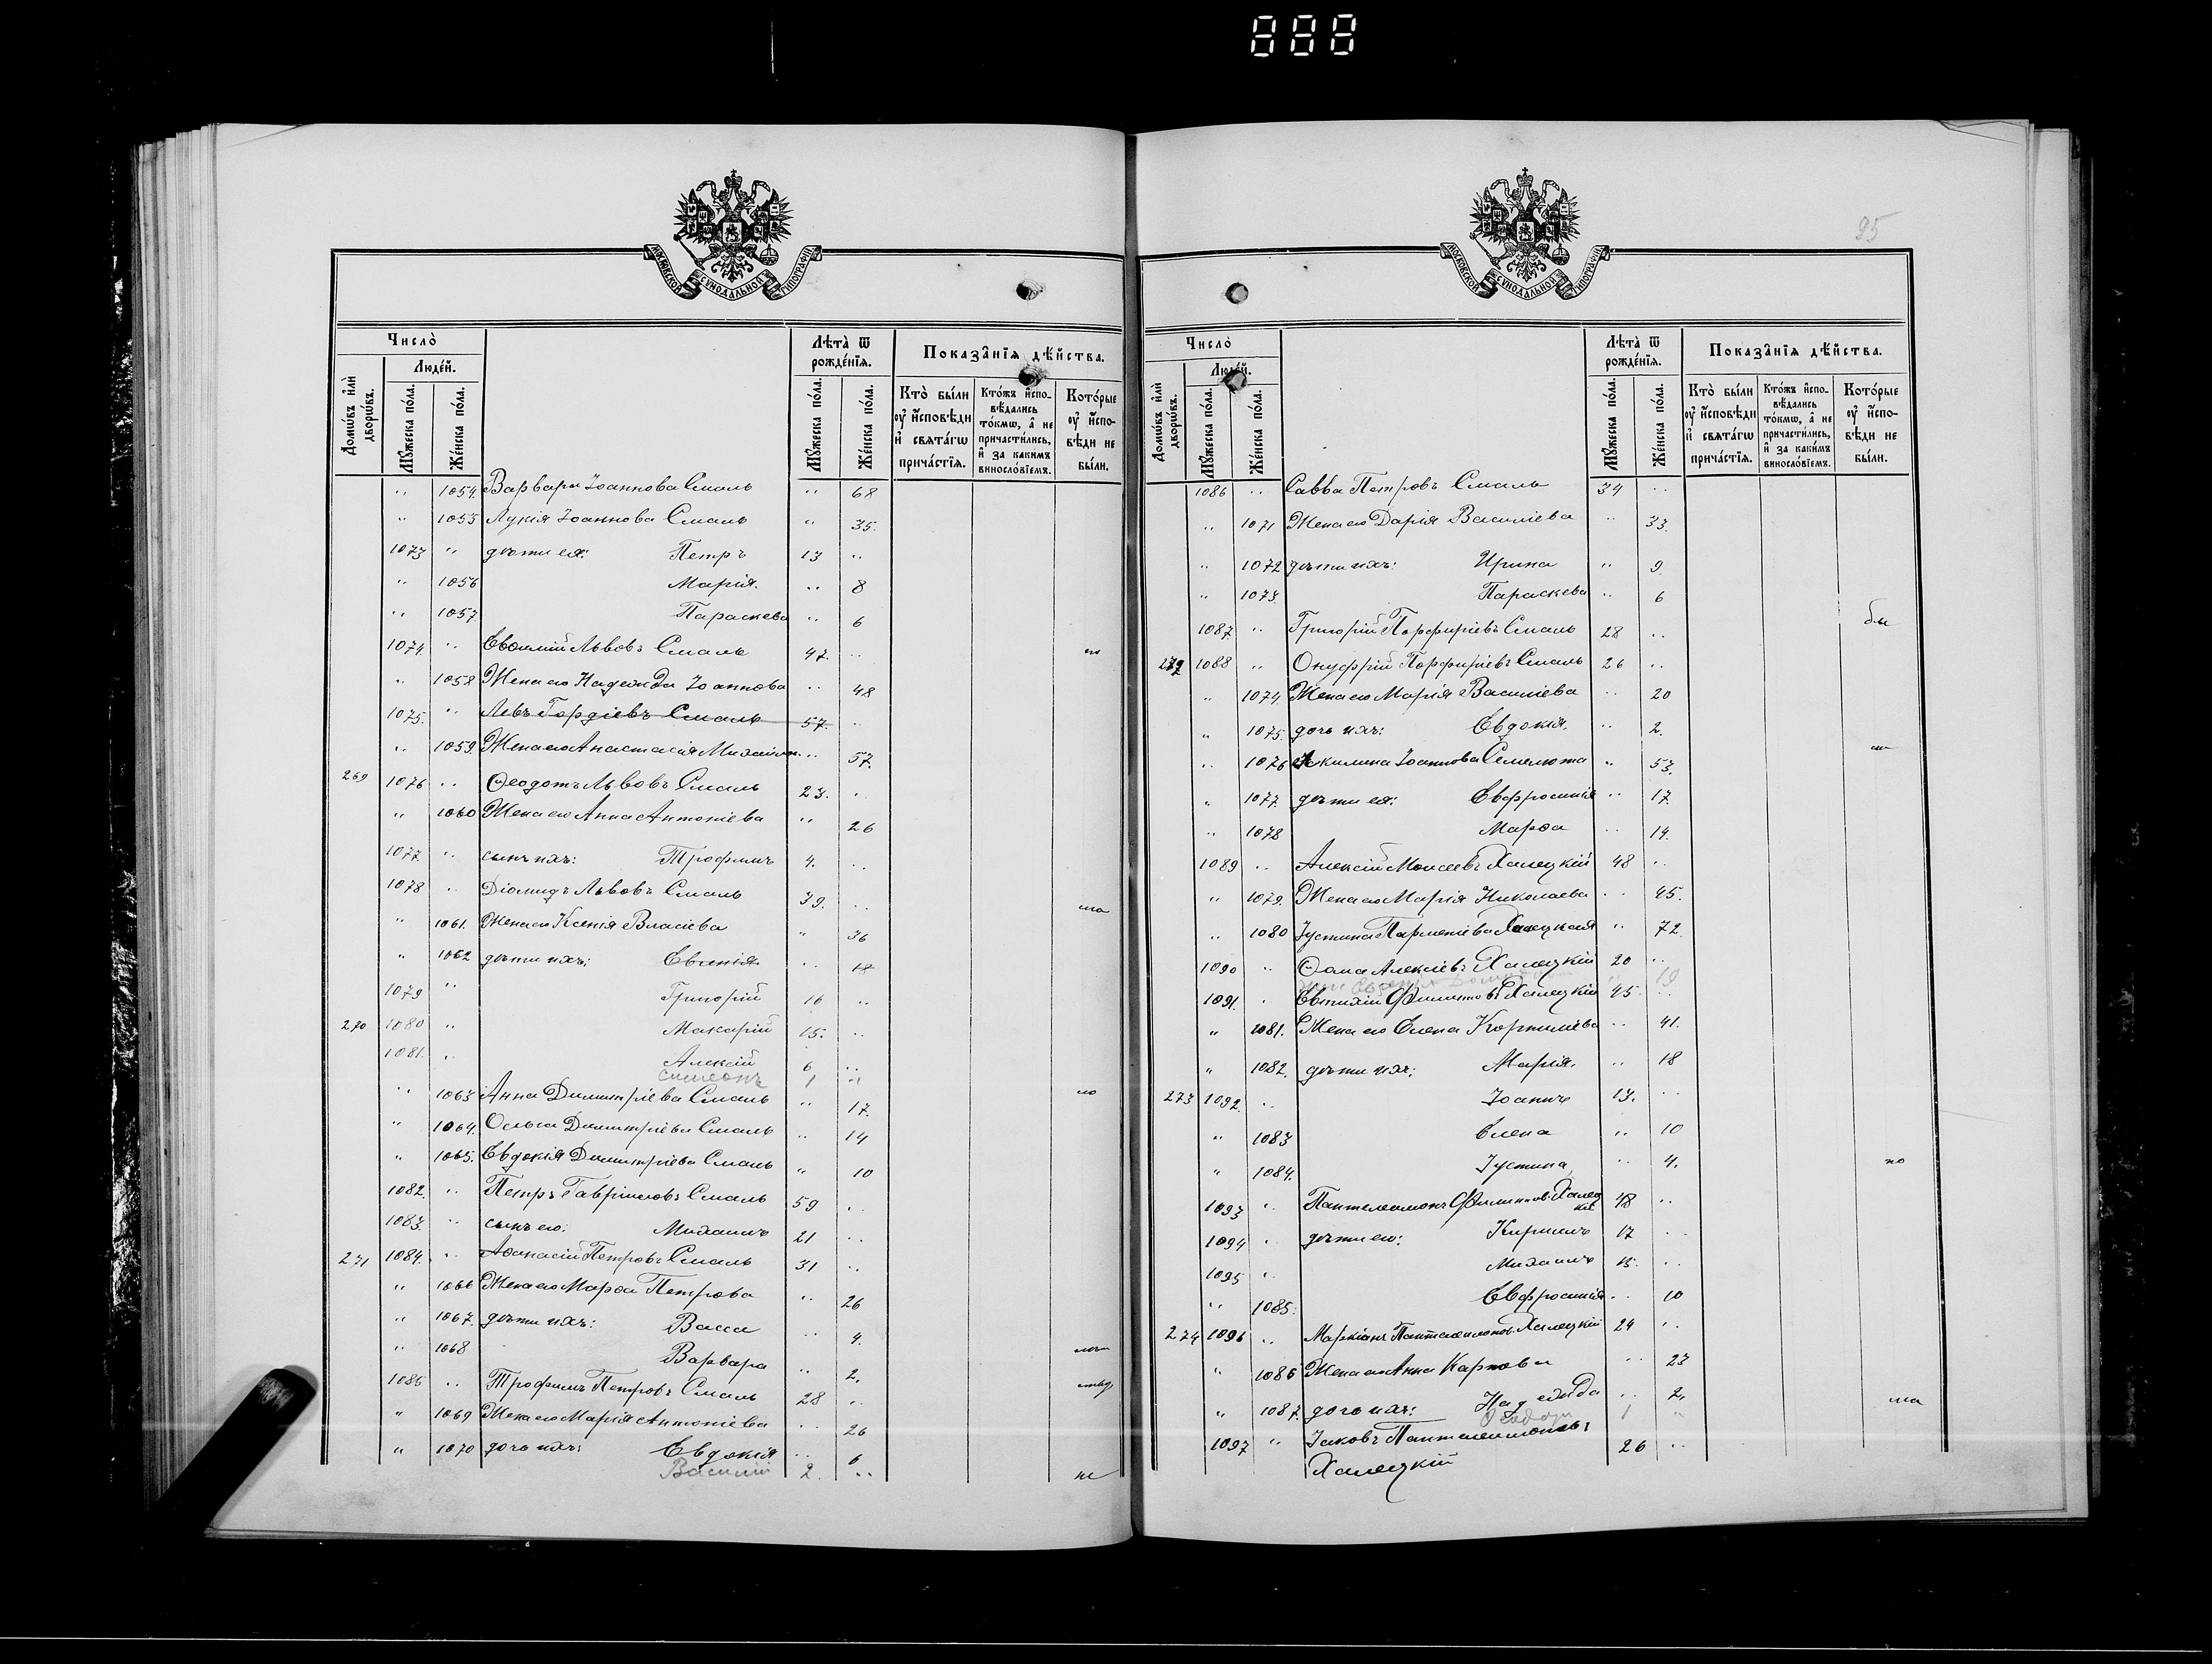 888
МОСКОВСКОЙ СѴНОДАЛЬНОЙ ТИПОГРАФІИ
Число̀
Людéй.
Домѡ́въ и҆лѝ дворѡ́въ.
Мꙋ́жеска по́ла.
Же́нска по́ла.
Лѣ́та ѿ рожде́нїѧ.
Мꙋ́жеска по́ла.
Же́нска по́ла.
Показа̑нїѧ дѣ́йства.
Кто̀ бы́ли ᲂу҆ и҆́сповѣди и҆ свѧта́гѡ прича́стїѧ.
Кто́жъ и҆спо-вѣ́дались то́кмѡ, а҆ не причасти́лись, и҆ за каки́мъ винослов́їемъ.
Кото́рые ᲂу҆ и҆́спо-вѣди не бы́ли.
" 1054. Варвара Іоаннова Смаль " 68
" 1055 Лукія Іоаннова Смаль " 35.
1073 " дѣти ея: Петръ 13 "
" 1056 Марія. " 8
" 1057. Параскева " 6
1074. " Евѳимій Львовъ Смаль 47. "
" 1058 Жена его Надежда Іоаннова " 48
1075. " Левъ Гордіевъ Смаль 57. "
" 1059. Жена его Анастасія Михайлова " 57.
269 1076 " Ѳеодотъ Львовъ Смаль 23. "
" 1060 Жена его Анна Антоніева " 26
1077. " сынъ ихъ: Трофимъ 4. "
1078 " Діомидъ Львовъ Смаль 39. "
" 1061. Жена его Ксенія Власіева " 36
" 1062 дѣти ихъ: Евгенія " 18
1079 " Григорій 16 "
270 1080 " Макарій 15. "
1081. " Алексій 6 "
Симеонъ 1 "
" 1063 Анна Димитріева Смаль " 17.
" 1064. Ольга Димитріева Смаль " 14
" 1065. Евдокія Димитріева Смаль " 10
1082. " Петръ Гавріиловъ Смаль 59 "
1083. " сынъ его: Михаилъ 21 "
271 1084. " Аѳанасій Петровъ Смаль 31 "
" 1066 Жена его Марѳа Петрова " 26
" 1067. дѣти ихъ: Васса " 4.
" 1068 Варвара " 2.
1085 " Трофимъ Петровъ Смаль 28 "
" 1069 Жена его Марія Антоніева " 26
" 1070 дочь ихъ: Евдокія " 6
Василій 2. "
95
МОСКОВСКОЙ СѴНОДАЛЬНОЙ ТИПОГРАФІИ
Число̀
Людéй.
Домѡ́въ и҆лѝ дворѡ́въ.
Мꙋ́жеска по́ла.
Же́нска по́ла.
Лѣ́та ѿ рожде́нїѧ.
Мꙋ́жеска по́ла.
Же́нска по́ла.
Показа̑нїѧ дѣ́йства.
Кто̀ бы́ли ᲂу҆ и҆́сповѣди и҆ свѧта́гѡ прича́стїѧ.
Кто́жъ и҆спо-вѣ́дались то́кмѡ, а҆ не причасти́лись, и҆ за каки́мъ винослов́їемъ.
Кото́рые ᲂу҆ и҆́спо-вѣди не бы́ли.
1086 " Савва Петровъ Смаль 34 "
" 1071 Жена его Дарія Василіева " 33.
" 1072 дѣти ихъ: Ирина " 9.
" 1073. Параскева " 6
1087. " Григорій Порфиріевъ Смаль 28 "
272 1088 " Онуфрій Порфиріевъ Смаль 26 "
" 1074. Жена его Марія Василіева " 20
" 1075. дочь ихъ: Евдокія. " 2.
" 1076 Акилина Іоаннова Семенюта " 53.
" 1077. дѣти ея: Евфросинія " 17.
" 1078 Марѳа " 14.
1089 " Алексій Моисеевъ Халецкій 48 "
" 1079. Жена его Марія Николаева " 45.
" 1080 Іустина Парменіева Халецкая " 72.
1090 " Ѳома Алексіевъ Халецкій 20 "
19
1091. " Евтихій Филиповъ Халецкій 45 "
" 1081. Жена его Елена Корниліева " 41.
" 1082. дѣти ихъ: Марія. " 18
273 1092. " Іоаннъ 13. "
" 1083 Елена " 10
" 1084. Іустина " 4.
1093 " Пантелеимонъ Филипповъ Халецкій 48 "
1094 " дѣти его: Кириллъ 17 "
1095 " Михаилъ 15. "
" 1085. Евфросинія " 10
274 1096 " Маркіанъ Пантелеимоновъ Халецкій 24 "
" 1086 Жена его Анна Карпова " 23
" 1087. дочь ихъ: Надежда " 2.
Ѳеодоръ 1 "
1097 " Іаковъ Пантелеимоновъ 26 "
Халецкій